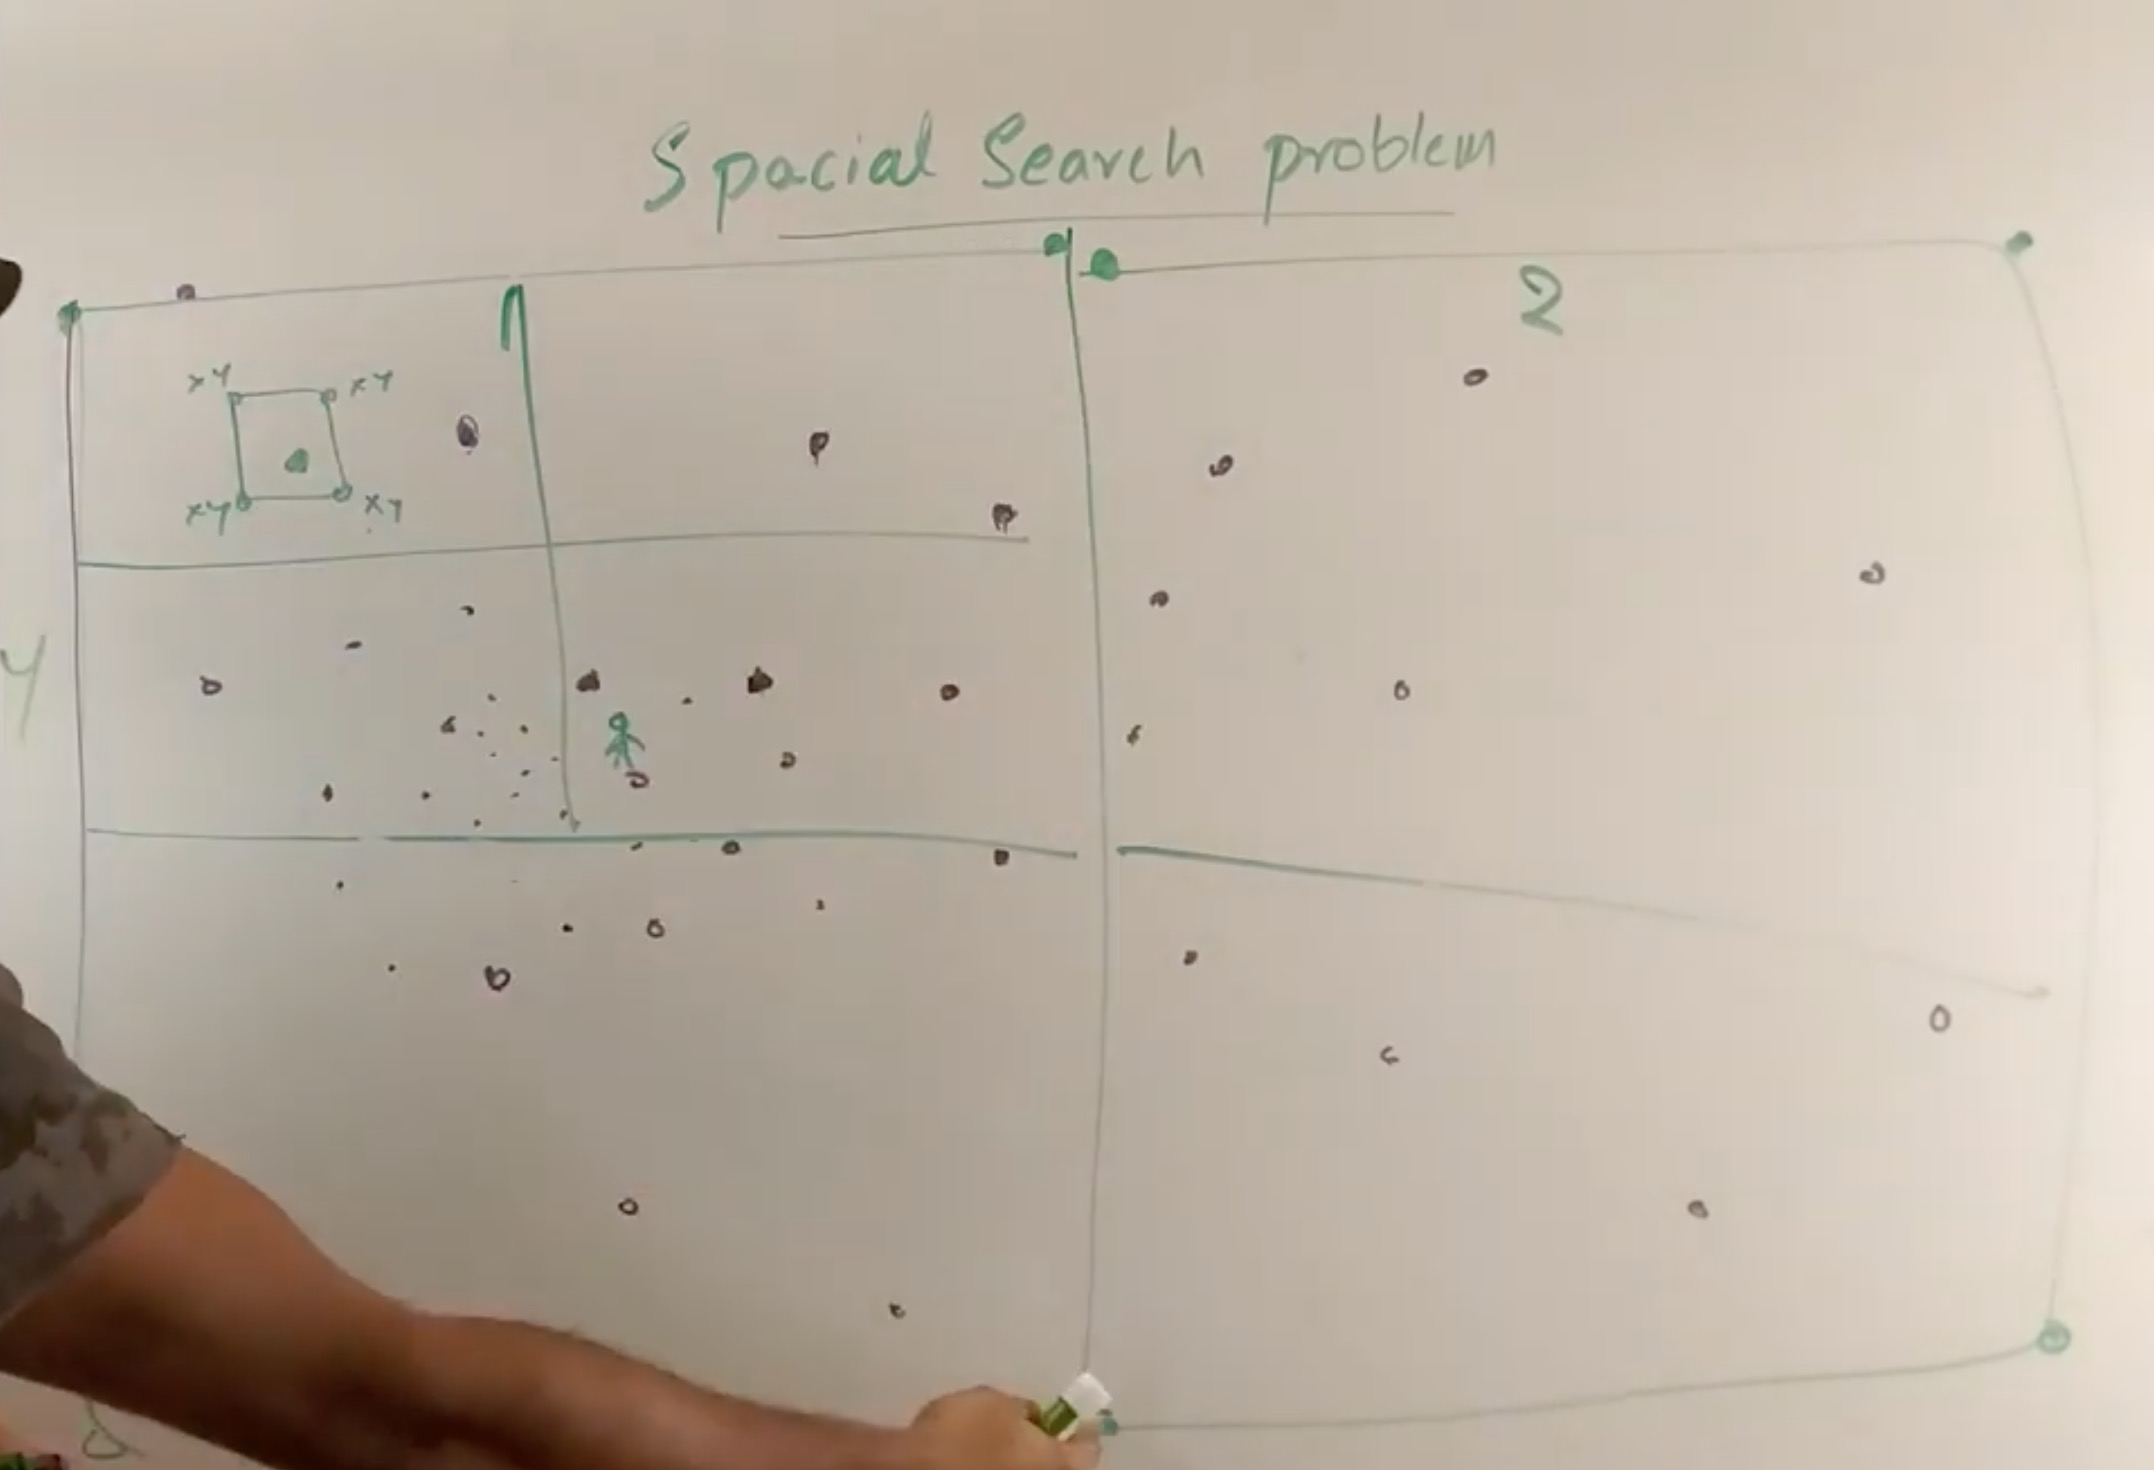 Spacial Search problem
1
2
XY XY
XY XY
Y